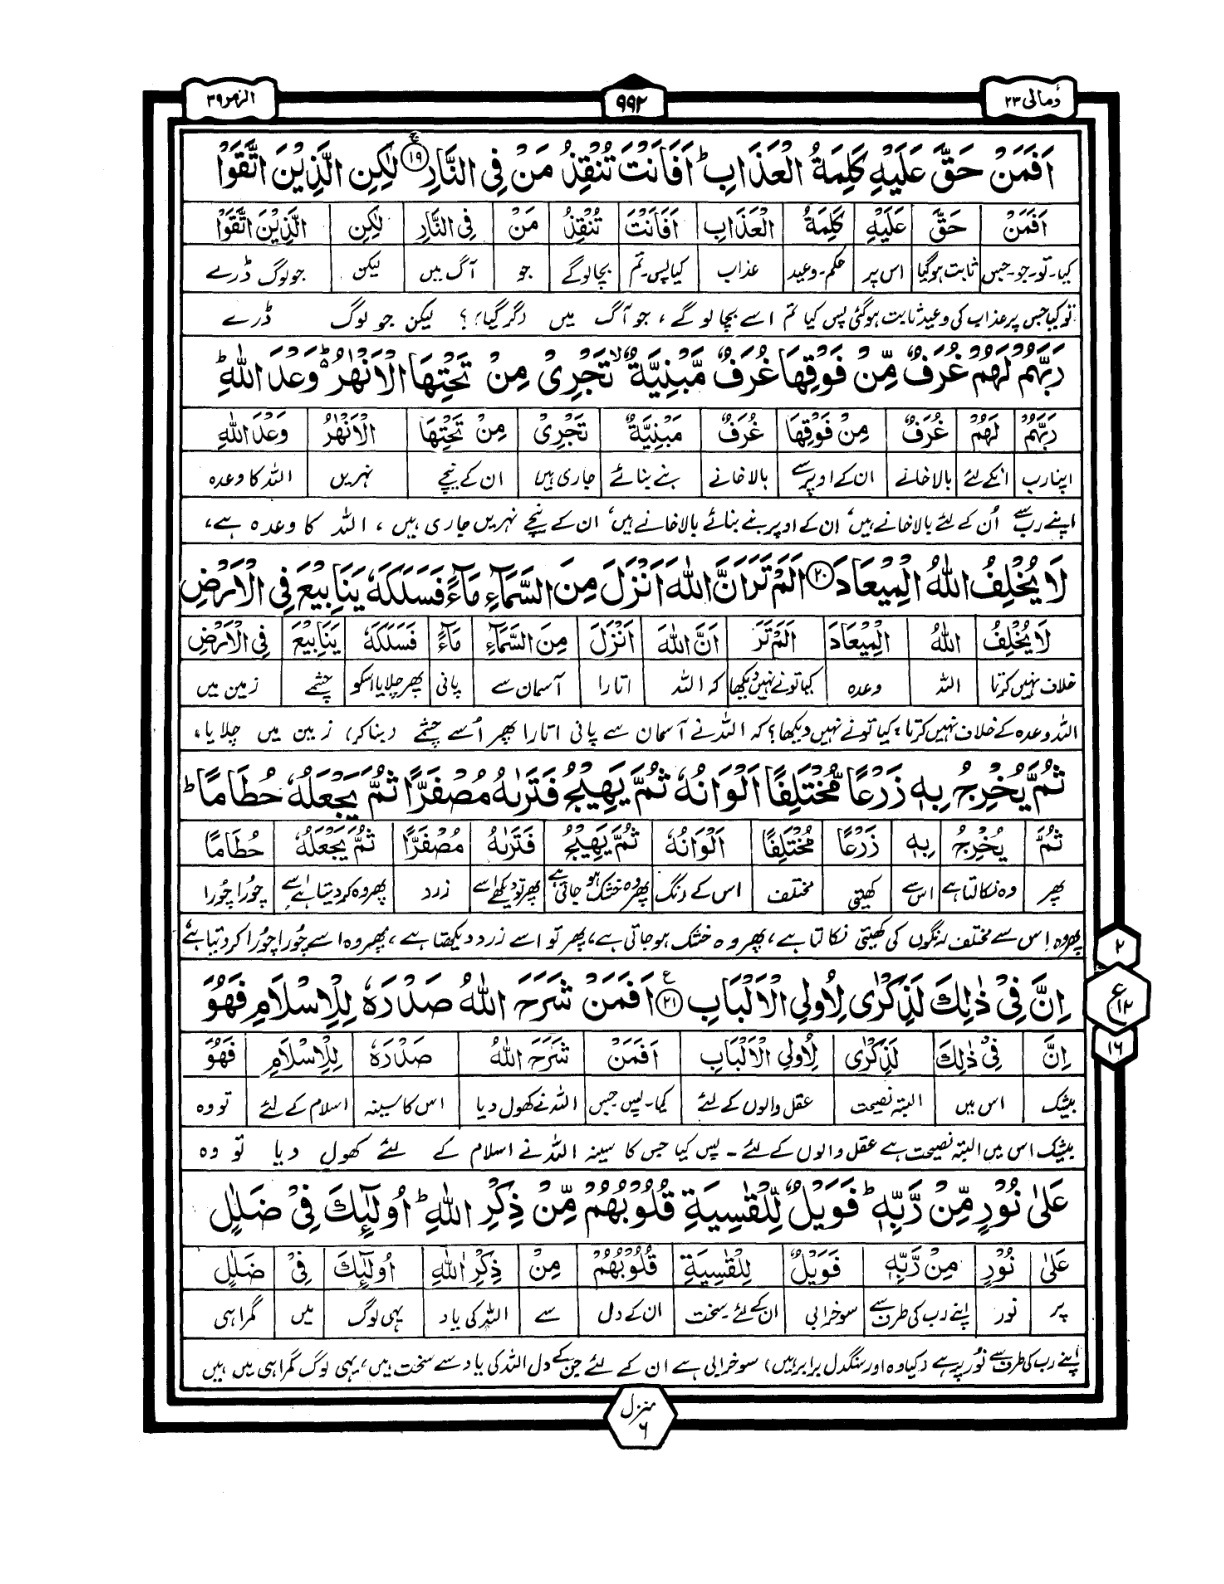 ومالی ۲۳
۹۹۲
الزمر ۳۹
اَفَمَنْ حَقَّ عَلَيْهِ كَلِمَةُ الْعَذَابِ ؕ اَفَاَنْتَ تُنْقِذُ مَنْ فِى النَّارِ ۚ ۱۹ لٰكِنِ الَّذِيْنَ اتَّقَوْا
اَفَمَنْ حَقَّ عَلَيْهِ كَلِمَةُ الْعَذَابِ اَفَاَنْتَ تُنْقِذُ مَنْ فِى النَّارِ لٰكِنِ الَّذِيْنَ اتَّقَوْا
کیا۔تو۔جو۔جس ثابت ہوگیا اس پر حکم۔وعید عذاب کیا پس۔تم بچا لوگے جو آگ میں لیکن جو لوگ ڈرے
تو کیا جس پر عذاب کی وعید ثابت ہوگئی پس کیا تم اسے بچا لو گے، جو آگ میں (گر گیا)؟ لیکن جو لوگ ڈرے
رَبَّهُمْ لَهُمْ غُرَفٌ مِّنْ فَوْقِهَا غُرَفٌ مَّبْنِيَّةٌ ۙ تَجْرِىْ مِنْ تَحْتِهَا الْاَنْهٰرُ ؕ وَعْدَ اللّٰهِ ؕ
رَبَّهُمْ لَهُمْ غُرَفٌ مِنْ فَوْقِهَا غُرَفٌ مَبْنِيَّةٌ تَجْرِىْ مِنْ تَحْتِهَا الْاَنْهٰرُ وَعْدَ اللّٰهِ
اپنا رب انکے لئے بالاخانے ان کے اوپر سے بالاخانے بنے بنائے جاری ہیں ان کے نیچے نہریں اللہ کا وعدہ
اپنے رب سے اُن کے لئے بالاخانے ہیں، ان کے اوپر بنے بنائے بالاخانے ہیں، ان کے نیچے نہریں جاری ہیں، اللہ کا وعدہ ہے،
لَا يُخْلِفُ اللّٰهُ الْمِيْعَادَ ۲۰ اَلَمْ تَرَ اَنَّ اللّٰهَ اَنْزَلَ مِنَ السَّمَآءِ مَآءً فَسَلَكَهٗ يَنَابِيْعَ فِى الْاَرْضِ
لَا يُخْلِفُ اللّٰهُ الْمِيْعَادَ اَلَمْ تَرَ اَنَّ اللّٰهَ اَنْزَلَ مِنَ السَّمَآءِ مَآءً فَسَلَكَهٗ يَنَابِيْعَ فِى الْاَرْضِ
خلاف نہیں کرتا اللہ وعدہ کیا تو نے نہیں دیکھا کہ اللہ اتارا آسمان سے پانی پھر چلایا اسکو چشمے زمین میں
اللہ وعدہ کے خلاف نہیں کرتا، کیا تو نے نہیں دیکھا؟ کہ اللہ نے آسمان سے پانی اتارا پھر اُسے چشمے (بنا کر) زمین میں چلایا،
ثُمَّ يُخْرِجُ بِهٖ زَرْعًا مُّخْتَلِفًا اَلْوَانُهٗ ثُمَّ يَهِيْجُ فَتَرٰىهُ مُصْفَرًّا ثُمَّ يَجْعَلُهٗ حُطَامًا ؕ
ثُمَّ يُخْرِجُ بِهٖ زَرْعًا مُخْتَلِفًا اَلْوَانُهٗ ثُمَّ يَهِيْجُ فَتَرٰىهُ مُصْفَرًّا ثُمَّ يَجْعَلُهٗ حُطَامًا
پھر وہ نکالتا ہے اس سے کھیتی مختلف اس کے رنگ پھر وہ خشک ہو جاتی ہے پھر تو دیکھے اسے زرد پھر وہ کر دیتا ہے اسے چورا چورا
پھر وہ اس سے مختلف رنگوں کی کھیتی نکالتا ہے، پھر وہ خشک ہو جاتی ہے، پھر تو اسے زرد دیکھتا ہے، پھر وہ اسے چورا چورا کر دیتا ہے
۲
ع
۱۲
۱۶
اِنَّ فِىْ ذٰلِكَ لَذِكْرٰى لِاُولِى الْاَلْبَابِ ۲۱ ع اَفَمَنْ شَرَحَ اللّٰهُ صَدْرَهٗ لِلْاِسْلَامِ فَهُوَ
اِنَّ فِىْ ذٰلِكَ لَذِكْرٰى لِاُولِى الْاَلْبَابِ اَفَمَنْ شَرَحَ اللّٰهُ صَدْرَهٗ لِلْاِسْلَامِ فَهُوَ
بیشک اس میں البتہ نصیحت عقل والوں کے لئے کیا۔پس جس اللہ نے کھول دیا اس کا سینہ اسلام کے لئے تو وہ
بیشک اس میں البتہ نصیحت ہے عقل والوں کے لئے۔ پس کیا جس کا سینہ اللہ نے اسلام کے لئے کھول دیا تو وہ
عَلٰى نُوْرٍ مِّنْ رَّبِّهٖ ؕ فَوَيْلٌ لِّلْقٰسِيَةِ قُلُوْبُهُمْ مِّنْ ذِكْرِ اللّٰهِ ؕ اُولٰٓئِكَ فِىْ ضَلٰلٍ
عَلٰى نُوْرٍ مِنْ رَّبِّهٖ فَوَيْلٌ لِلْقٰسِيَةِ قُلُوْبُهُمْ مِنْ ذِكْرِ اللّٰهِ اُولٰٓئِكَ فِىْ ضَلٰلٍ
پر نور اپنے رب کی طرف سے سو خرابی ان کے لئے سخت ان کے دل سے اللہ کی یاد یہی لوگ میں گمراہی
اپنے رب کی طرف سے نور پر ہے (کیا وہ اور سنگدل برابر ہیں) سو خرابی ہے ان کے لئے جن کے دل اللہ کی یاد سے سخت ہیں، یہی لوگ گمراہی میں ہیں
منزل ۶